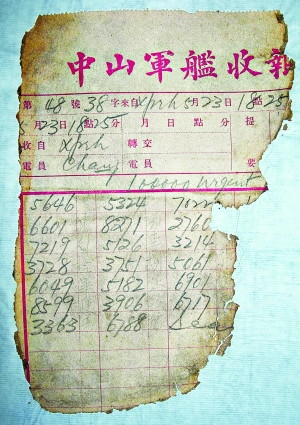 中山軍艦收報
第 48 號 38 字來自 xprh 5月23日 18點25
5月23日18點25分 月 日 點 分 提
收自 xprh 轉交
電員 Chang 電員 要
100000 Urgent
5646 5324
6601 8271 2760
7219 5126 3214
3728 3751 5061
6049 5182 6901
8599 3906 6717
3363 6788